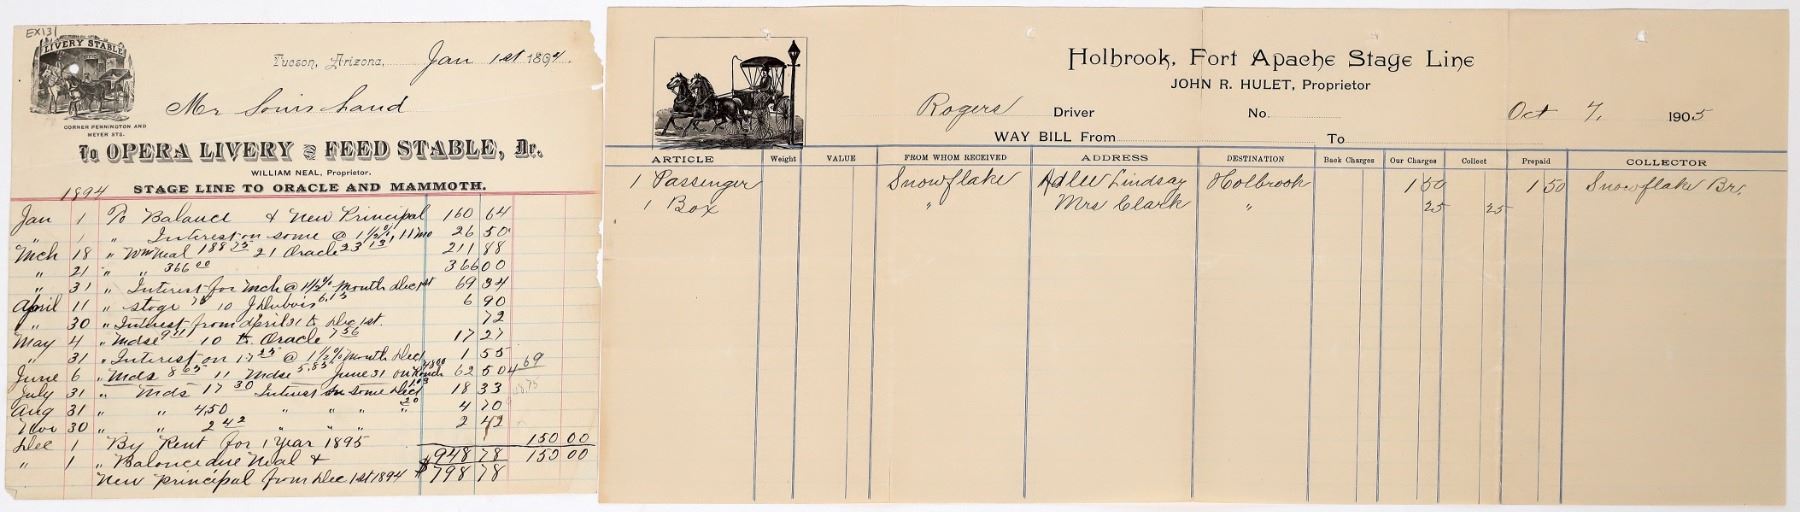 EX131
LIVERY STABLE
CORNER PENNINGTON AND
MEYER STS.
Tucson, Arizona, Jan 1st 1894.
Mr Louis
To OPERA LIVERY AND FEED STABLE, Dr.
WILLIAM NEAL, Proprietor.
STAGE LINE TO ORACLE AND MAMMOTH.
1894
Jan 1 To Balance & New Principal 160 64
" 1 " Interest on some @ 1 1/2 %, 11 mo 26 50
Mch 18 " Wm Neal 188 75 21 Oracle 23 13 211 88
" 21 " " 366 00 366 00
" 31 " Interest for Mch @ 1 1/2 % Month Dec 1st 69 34
April 11 " stage 75 10 J Dubois 6.15 6 90
" 30 " Interest from April 31 to Dec 1st. 72
May 4 " Mdse 9 71 10 to Oracle 7 56 17 27
" 31 " Interest on 17 25 @ 1 1/2 % Month Dec 1 55
June 6 " Mds 8 65 11 Mdse 5.85 June 31 on Ranch 48 00 62 50 4 69
July 31 " Mds 17 30 Interest on some Dec 1.03 18 33 18.75
Aug 31 " " 4,50 " " " " 20 4 70
Nov 30 " " 2 42 " " " 2 42
Dec 1 By Rent for 1 Year 1895 150 00
" 1 " Balance due Neal & $948 78 150 00
New principal from Dec 1st 1894 $798 78
Holbrook, Fort Apache Stage Line
JOHN R. HULET, Proprietor
Rogers Driver No. Oct 7, 1905
WAY BILL From To
ARTICLE Weight VALUE FROM WHOM RECEIVED ADDRESS DESTINATION Back Charges Our Charges Collect Prepaid COLLECTOR
1 Passenger Snowflake Lindsay Holbrook 1 50 1 50 Snowflake Br.
1 Box " Mrs Clark " 25 25